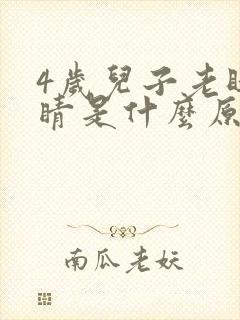 4歲兒子老
睛是什麼原
南瓜老妖